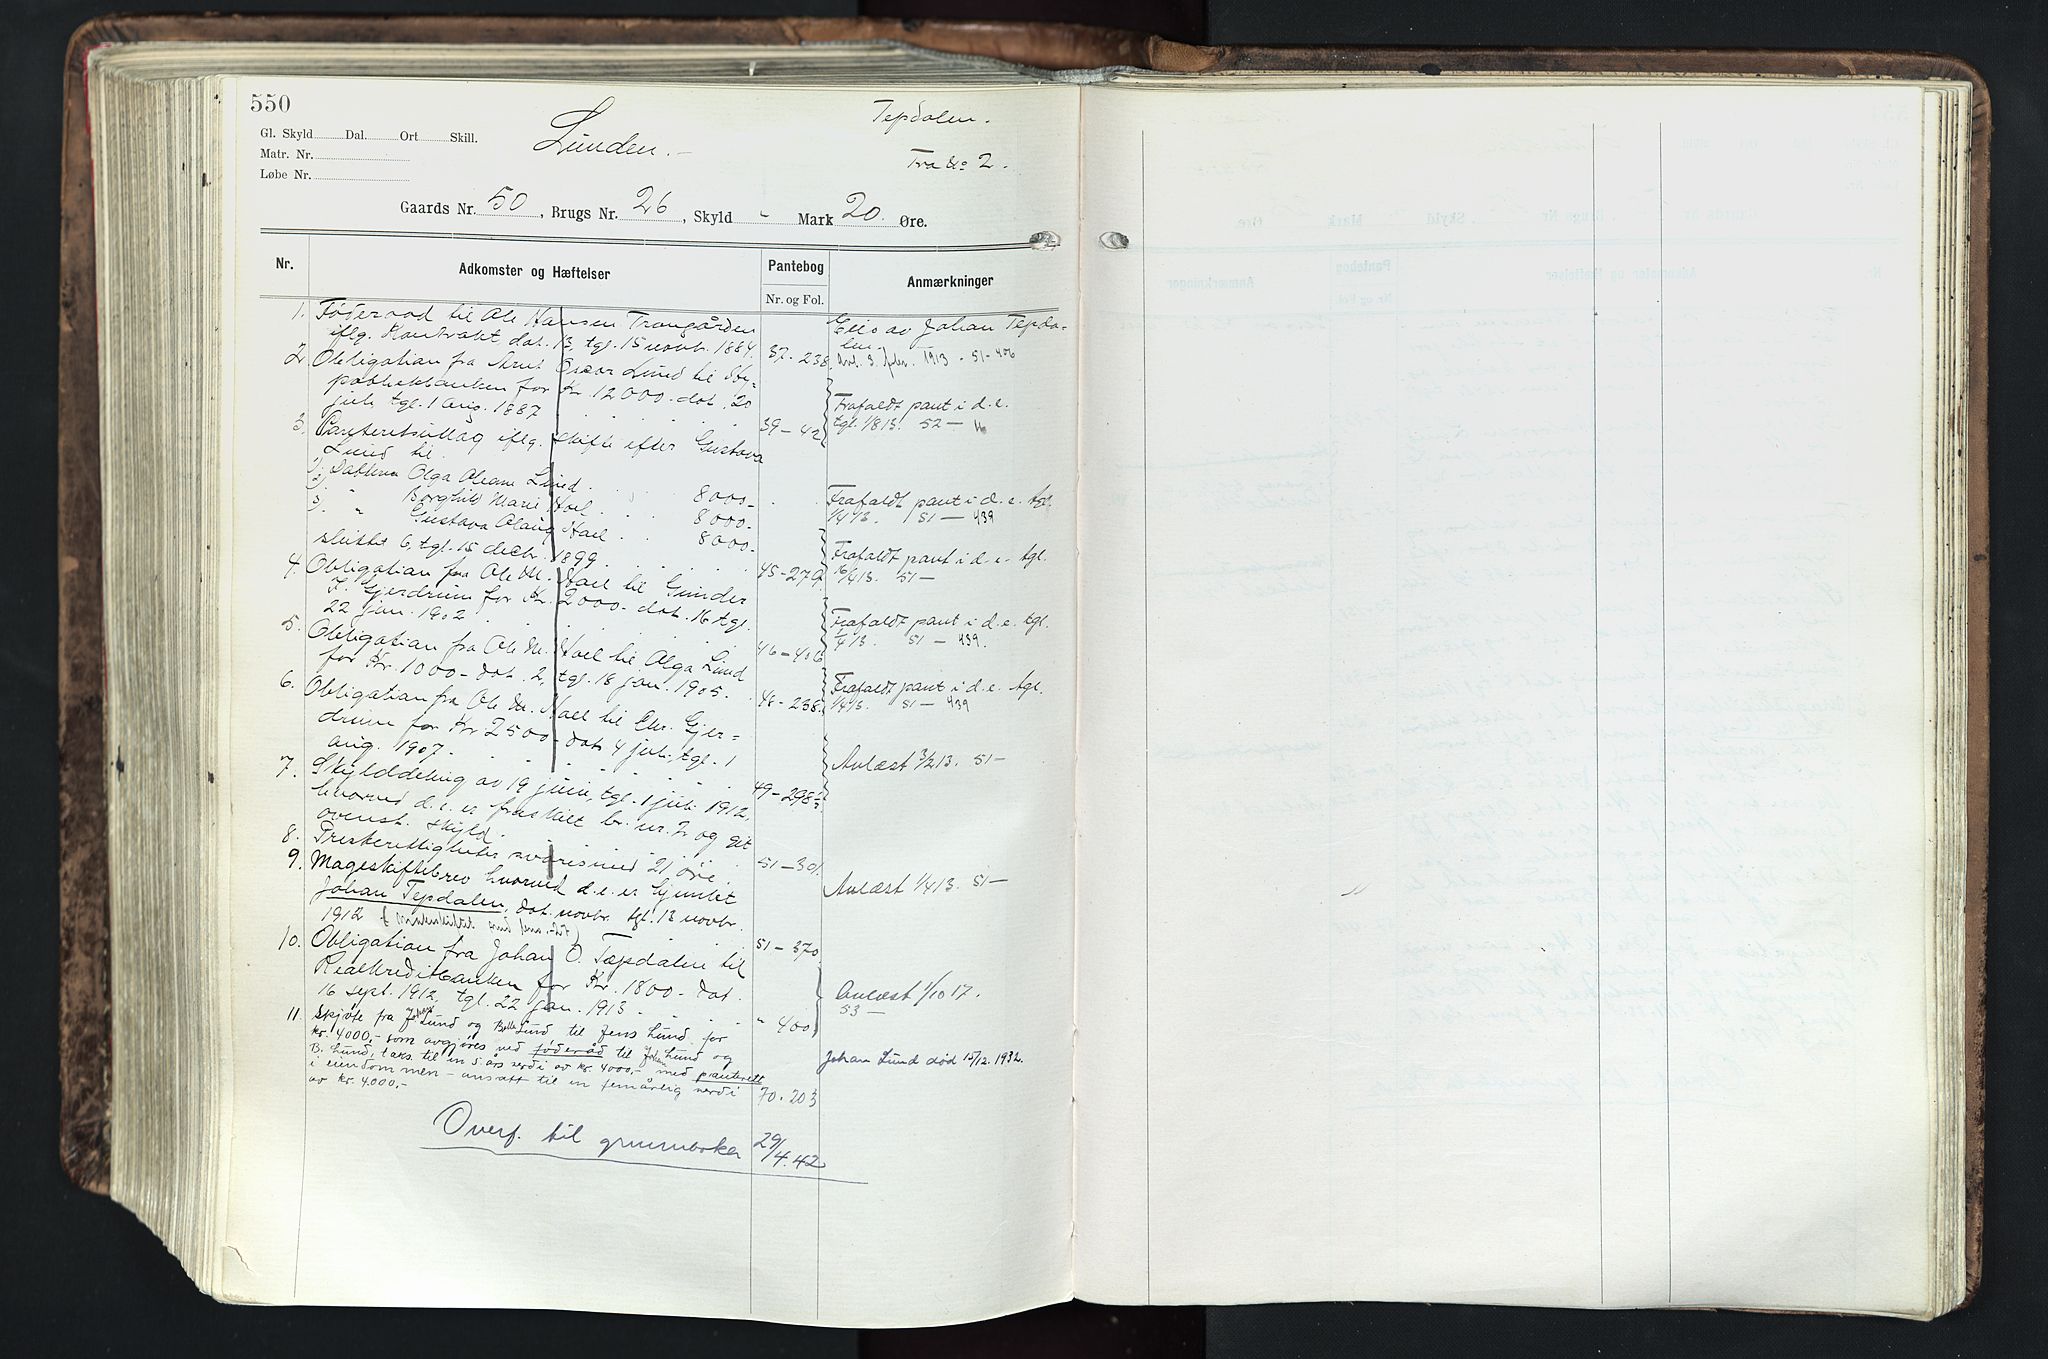 550
Tepdalen.
Gl. Skyld Dal. Ort Skill.
Lunden.-
Matr. Nr.
Fra No 2.
Løbe Nr.
Gaards Nr. 50, Brugs Nr. 26, Skyld - Mark 20. Øre.
Nr. Adkomster og Hæftelser Pantebog Anmærkninger
Nr. og Fol.
1. Føderaad til Ole Hansen Trongården
iflg. Kontrakt dat. 13, tgl. 15 novbr. 1884. 37-238.
Eies av Johan Tepda-
len.
3 1913. 51-406
2. Obligation fra Arnt Oscar Lund til Hy-
pothekbanken for Kr. 12000.- dat. 20
juli, tgl. 1 Aug. 1887 39-42
Frafaldt pant i d. e.
tgl. 1/8 13. 52-
3. Panteretsutlæg iflg. skifte efter Gustava
Lund til
1) Datteren Olga Lund 8000-
2) " Borghild Marie Hoel 8000-
3) " Gustava Aslaug Hoel 8000-
sluttet 6, tgl. 15 decbr. 1899. 45-279
Frafaldt pant i d. e. tgl.
1/4 13. 51-439
4. Obligation fra Ole M. Hoel til Gunder
Gjerdrum for Kr. 2000.- dat. 16 tgl.
22 jan. 1902 46-406
Frafaldt pant i d. e. tgl.
16/4 13. 51-
5. Obligation fra Ole M. Hoel til Olga Lund
for Kr. 1000- dat. 2, tgl. 18 jan. 1905. 48-238.
Frafaldt pant i d. e. tgl.
1/4 13. 51-439.
6. Obligation fra Ole M. Hoel til Chr. Gjer-
drum for Kr 2500- dat. 4 juli, tgl. 1
aug. 1907. 49-298
Frafaldt pant i d. e. tgl.
1/4 13. 51-439
7. Skylddeling av 19 juni, tgl. 1 juli 1912,
hvorved d. e. er fraskilt br. nr. 2 og git
ovenst. skyld. 51-301.
Avlæst 3/2 13. 51-
8. svares med 21 øre.
9. Mageskiftebrev hvorved d. e. er hjemlet
Johan Tepdalen, dat. novbr. tgl. 13 novbr.
1912 51-370
Avlæst 1/4 13. 51-
10. Obligation fra Johan O. Tæpdalen til
Realkreditbanken for Kr. 1800- dat.
16 sept. 1912, tgl. 22 jan. 1913. " 400
Avlæst 1/10 17.
53-
11. Skjøte fra Johan Lund og Lund til Jens Lund for
kr. 4000,- som avgjøres ved føderåd til Johan Lund og
B. Lund, taks. til en 5 års verdi av kr. 4000,- med panterett
i eiendommen - ansatt til en femårlig verdi
av kr. 4000,- 70-203
Johan Lund død 15/12. 1932.
Overf. til grunnboken 29/4.42